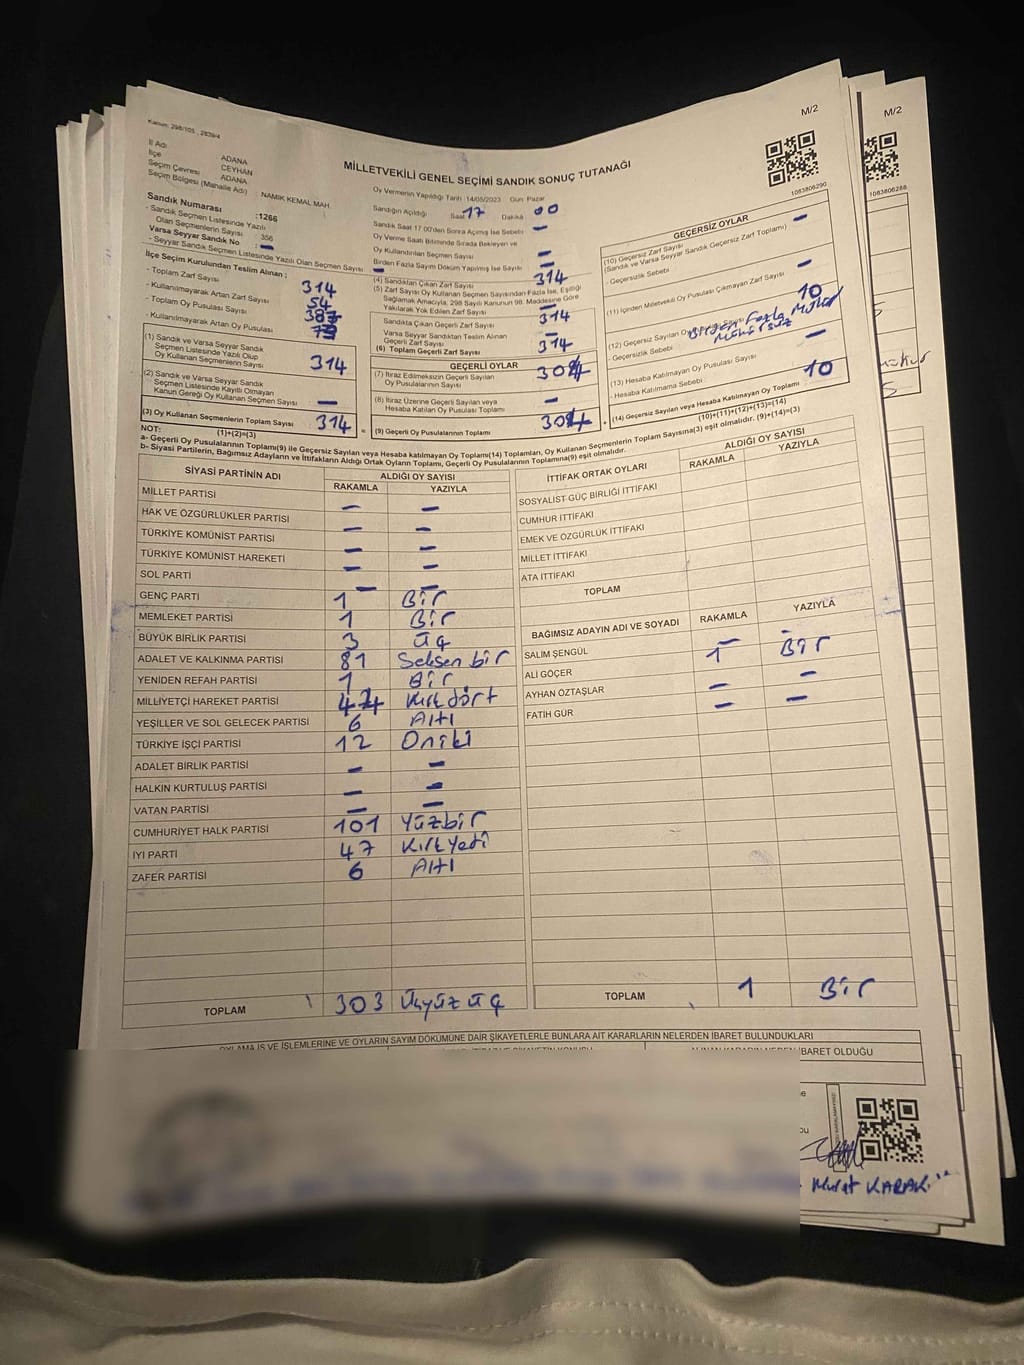 M/2
M/2
Kanun: 298/105 , 2839/4
İl Adı ADANA
İlçe CEYHAN
Seçim Çevresi ADANA
Seçim Bölgesi (Mahalle Adı) NAMIK KEMAL MAH.
MİLLETVEKİLİ GENEL SEÇİMİ SANDIK SONUÇ TUTANAĞI
1063806290
1063806288
Sandık Numarası :1266
- Sandık Seçmen Listesinde Yazılı
Olan Seçmenlerin Sayısı 356
Varsa Seyyar Sandık No : –
- Seyyar Sandık Seçmen Listesinde Yazılı Olan Seçmen Sayısı –
İlçe Seçim Kurulundan Teslim Alınan ;
- Toplam Zarf Sayısı 314
- Kullanılmayarak Artan Zarf Sayısı 54
- Toplam Oy Pusulası Sayısı 387
- Kullanılmayarak Artan Oy Pusulası
(1) Sandık ve Varsa Seyyar Sandık
Seçmen Listesinde Yazılı Olup
Oy Kullanan Seçmenlerin Sayısı 314
(2) Sandık ve Varsa Seyyar Sandık
Seçmen Listesinde Kayıtlı Olmayan
Kanun Gereği Oy Kullanan Seçmen Sayısı –
(3) Oy Kullanan Seçmenlerin Toplam Sayısı 314
(1)+(2)=(3)
Oy Vermenin Yapıldığı Tarih 14/05/2023 Gün Pazar
Sandığın Açıldığı Saat 17 Dakika 00
Sandık Saat 17.00'den Sonra Açılmış İse Sebebi –
Oy Verme Saati Bitiminde Sırada Bekleyen ve
Oy Kullandırılan Seçmen Sayısı –
Birden Fazla Sayım Döküm Yapılmış İse Sayısı –
(4) Sandıktan Çıkan Zarf Sayısı 314
(5) Zarf Sayısı Oy Kullanan Seçmen Sayısından Fazla İse, Eşitliği
Sağlamak Amacıyla, 298 Sayılı Kanunun 98. Maddesine Göre
Yakılarak Yok Edilen Zarf Sayısı –
Sandıkta Çıkan Geçerli Zarf Sayısı 314
Varsa Seyyar Sandıktan Teslim Alınan
Geçerli Zarf Sayısı –
(6) Toplam Geçerli Zarf Sayısı 314
GEÇERLİ OYLAR
(7) İtiraz Edilmeksizin Geçerli Sayılan
Oy Pusulalarının Sayısı 304
(8) İtiraz Üzerine Geçerli Sayılan veya
Hesaba Katılan Oy Pusulası Toplamı –
(9) Geçerli Oy Pusulalarının Toplamı 304
GEÇERSİZ OYLAR
(10) Geçersiz Zarf Sayısı –
(Sandık ve Varsa Seyyar Sandık Geçersiz Zarf Toplamı)
- Geçersizlik Sebebi
(11) İçinden Milletvekili Oy Pusulası Çıkmayan Zarf Sayısı –
(12) Geçersiz Sayılan Oy Pusulası Sayısı 10
- Geçersizlik Sebebi Birden Fazla Mühür
Mühürsüz
(13) Hesaba Katılmayan Oy Pusulası Sayısı –
- Hesaba Katılmama Sebebi
(14) Geçersiz Sayılan veya Hesaba Katılmayan Oy Toplamı 10
(10)+(11)+(12)+(13)=(14)
NOT:
a- Geçerli Oy Pusulalarının Toplamı(9) ile Geçersiz Sayılan veya Hesaba katılmayan Oy Toplamı(14) Toplamları, Oy Kullanan Seçmenlerin Toplam Sayısına(3) eşit olmalıdır. (9)+(14)=(3)
b- Siyasi Partilerin, Bağımsız Adayların ve İttifakların Aldığı Ortak Oyların Toplamı, Geçerli Oy Pusulalarının Toplamına(9) eşit olmalıdır.
SİYASİ PARTİNİN ADI ALDIĞI OY SAYISI
RAKAMLA YAZIYLA
MİLLET PARTİSİ – –
HAK VE ÖZGÜRLÜKLER PARTİSİ – –
TÜRKİYE KOMÜNİST PARTİSİ – –
TÜRKİYE KOMÜNİST HAREKETİ – –
SOL PARTİ – –
GENÇ PARTİ 1 Bir
MEMLEKET PARTİSİ 1 Bir
BÜYÜK BİRLİK PARTİSİ 3 Üç
ADALET VE KALKINMA PARTİSİ 81 Seksen bir
YENİDEN REFAH PARTİSİ 1 Bir
MİLLİYETÇİ HAREKET PARTİSİ 44 Kırk dört
YEŞİLLER VE SOL GELECEK PARTİSİ 6 Altı
TÜRKİYE İŞÇİ PARTİSİ 12 Oniki
ADALET BİRLİK PARTİSİ – –
HALKIN KURTULUŞ PARTİSİ – –
VATAN PARTİSİ – –
CUMHURİYET HALK PARTİSİ 101 Yüzbir
İYİ PARTİ 47 Kırkyedi
ZAFER PARTİSİ 6 Altı
TOPLAM 303 Üçyüz üç
İTTİFAK ORTAK OYLARI ALDIĞI OY SAYISI
RAKAMLA YAZIYLA
SOSYALİST GÜÇ BİRLİĞİ İTTİFAKI
CUMHUR İTTİFAKI
EMEK VE ÖZGÜRLÜK İTTİFAKI
MİLLET İTTİFAKI
ATA İTTİFAKI
TOPLAM
BAĞIMSIZ ADAYIN ADI VE SOYADI RAKAMLA YAZIYLA
SALİM ŞENGÜL – –
ALİ GÖÇER 1 Bir
AYHAN ÖZTAŞLAR – –
FATİH GÜR – –
TOPLAM 1 Bir
OYLAMA İŞ VE İŞLEMLERİNE VE OYLARIN SAYIM DÖKÜMÜNE DAİR ŞİKAYETLERLE BUNLARA AİT KARARLARIN NELERDEN İBARET BULUNDUKLARI
İBARET OLDUĞU
Murat KARAK